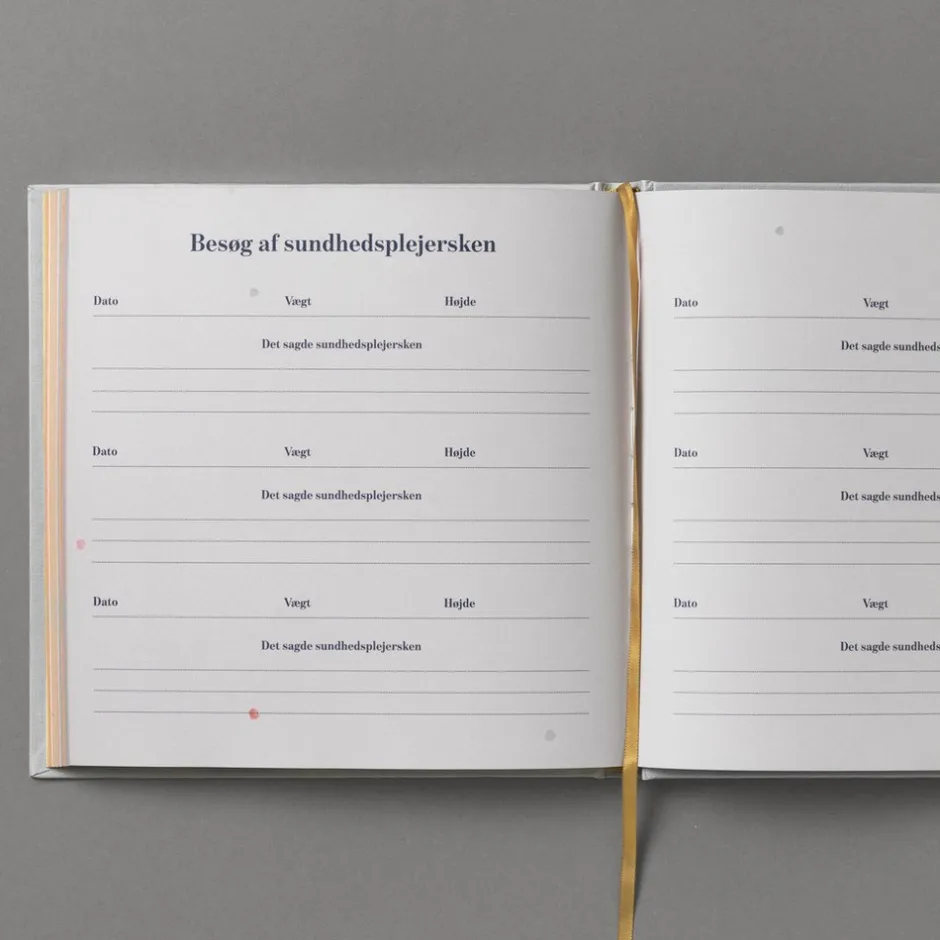 Besøg af sundhedsplejersken
Dato Vægt Højde
Det sagde sundhedsplejersken
Dato Vægt Højde
Det sagde sundhedsplejersken
Dato Vægt Højde
Det sagde sundhedsplejersken
Dato Vægt
Det sagde sundheds
Dato Vægt
Det sagde sundheds
Dato Vægt
Det sagde sundheds